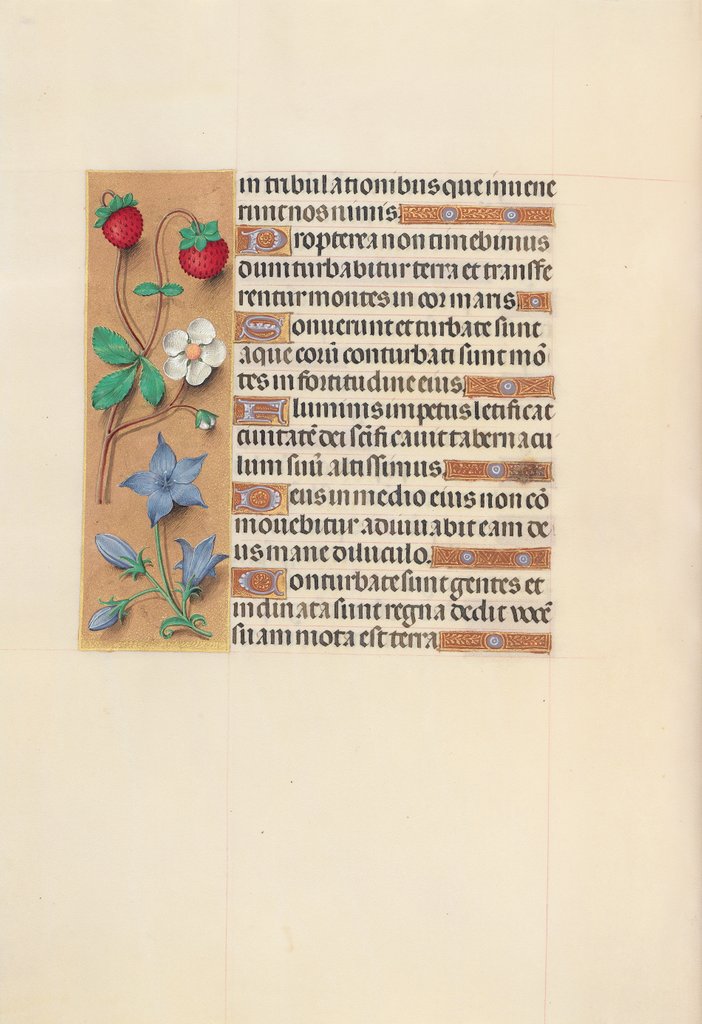 in tribulationibus que inuene
runt nos nimis.
Propterea non timebimus
dum turbabitur terra et transfe
rentur montes in cor maris.
Sonuerunt et turbate sunt
aque eorū conturbati sunt mō
tes in fortitudine eius.
Fluminis impetus letificat
ciuitatē dei scīficauit tabernacu
lum suū altissimus.
Deus in medio eius non cō
mouebitur adiuuabit eam de
us mane diluculo.
Conturbate sunt gentes et
inclinata sunt regna dedit vocē
suam mota est terra.